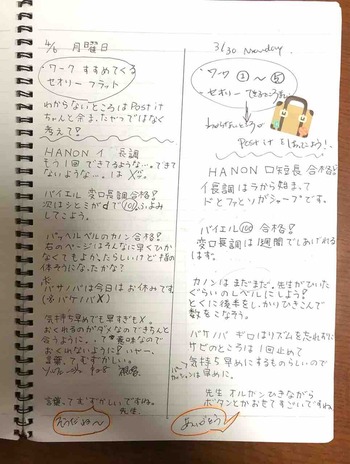 4/6 月曜日
・ワーク すすめてくる
セオリー フラット
わからないところは Post it
ちゃんと余ま、たやつではなく
考えて?
HANON イ 長調
もう1回 できてるような…。できて
ないような…。は X
バイエル 変ロ長調合格!
次はシとミがdで
してこよう。
バッヘルベルのカノン合格!
右のページはそんなに早くひか
なくてもよか、たらしいけど指の
体そうになったかな?
バサノバは今日はお休みです
気持ち早めでも早すぎもX。
おくれるのがダメなのできちんと
合うように。って意味なので
おくれないように! いやー。
言葉、てむずかしい。
言葉、てむずかしいですね。
先生
3/30 Monday.
・ワーク ① ~ ⑤
・セオリー できるところまで
わからないところ
Post it をはってこよう!
HANON ロ短長 合格
イ長調はラから始まって
ドとファとソがシャープです。
バイエル 100 合格!
変ロ長調は1週間でしあげれる
はず。
カノンはまだまだ。先生がひいた
ぐらいのレベルにしよう!
とくに後半をしかりひきこんで
数をこなそう。
バサノバ ギロはリズムを忘れずに
サビのところは1回止めて
気持ち早めにするものらしいので
は早めに。
先生 オルガンひきながら
ボタンとかおせてすごいですね
ありがとう